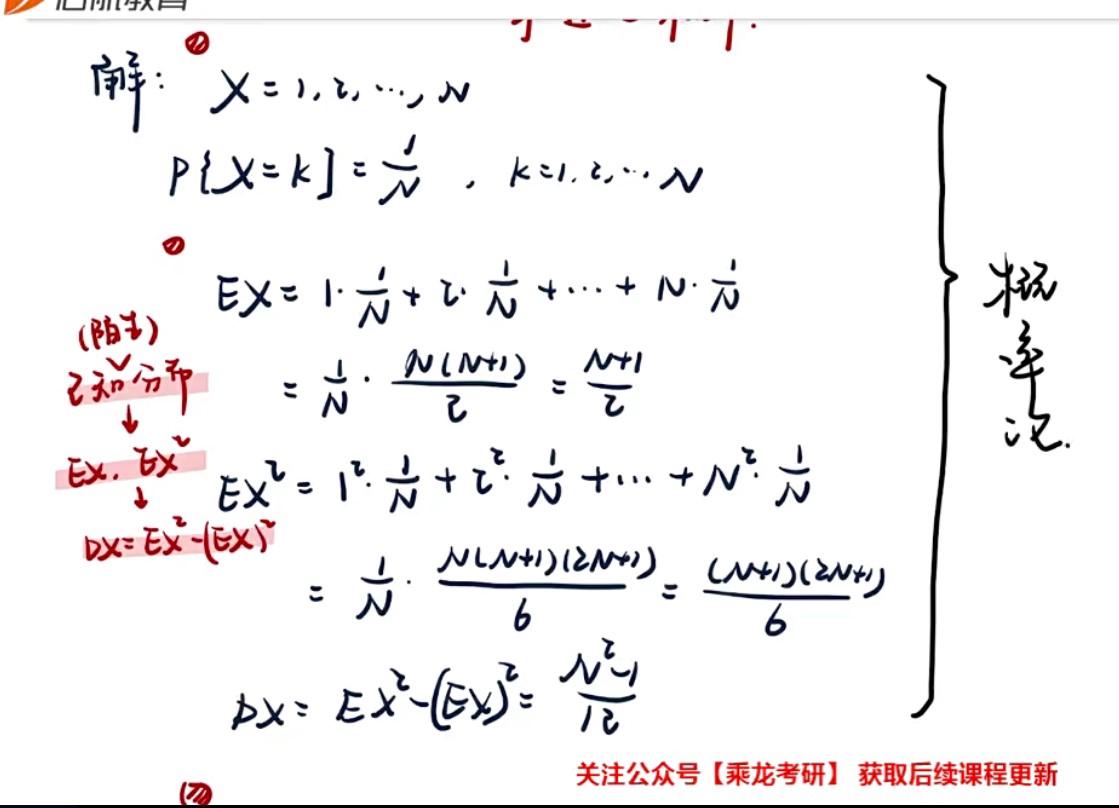 启航教育
解: X = 1, 2, ⋯, N
P{X=k} = 1/N , k=1, 2, ⋯ N
EX = 1·1/N + 2·1/N + ⋯ + N·1/N
= 1/N · N(N+1)/2 = (N+1)/2
EX² = 1²·1/N + 2²·1/N + ⋯ + N²·1/N
= 1/N · N(N+1)(2N+1)/6 = (N+1)(2N+1)/6
DX = EX²-(EX)² = (N²-1)/12
(陌生)
已知分布
↓
EX. EX²
↓
DX=EX²-(EX)²
概
率
论.
关注公众号【乘龙考研】 获取后续课程更新